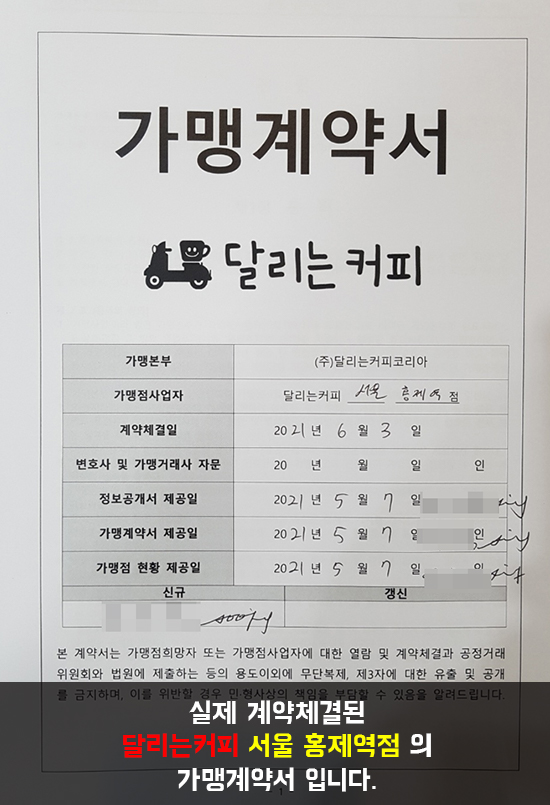 가맹계약서
달리는커피
가맹본부 (주)달리는커피코리아
가맹점사업자 달리는커피 서울 홍제역 점
계약체결일 2021년 6월 3일
변호사 및 가맹거래사 자문 20 년 월 일 인
정보공개서 제공일 2021년 5월 7일
가맹계약서 제공일 2021년 5월 7일 인
가맹점 현황 제공일 2021년 5월 7일
신규 갱신
본 계약서는 가맹점희망자 또는 가맹점사업자에 대한 열람 및 계약체결과 공정거래
위원회와 법원에 제출하는 등의 용도이외에 무단복제, 제3자에 대한 유출 및 공개
를 금지하며, 이를 위반할 경우 민·형사상의 책임을 부담할 수 있음을 알려드립니다.
실제 계약체결된
달리는커피 서울 홍제역점 의
가맹계약서 입니다.
1